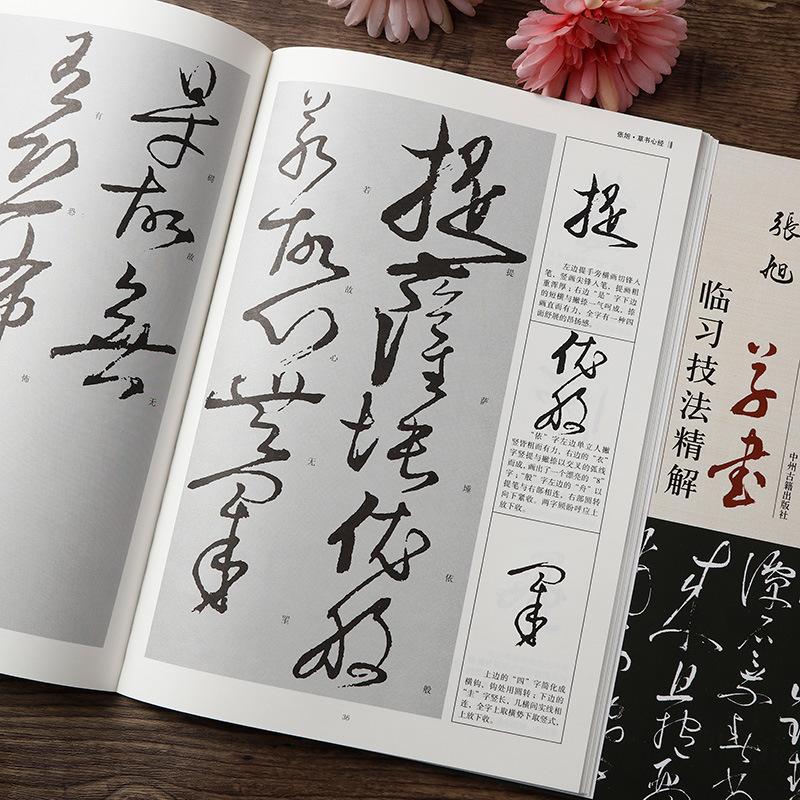 张旭·草书心经
提薩埵依般
提
萨
埵
依
般
若故心無罣
若
故
心
无
罣
碍
故無
故
无
有恐怖
有
恐
怖
提
左边提手旁横画切锋入
笔，竖画尖锋入笔，提画粗
重浑厚；右边“是”字下边
的短横与撇捺一气呵成，捺
画直而有力，全字有一种四
面舒展的昂扬感。
依般
“依”字左边单立人撇
竖皆粗而有力，右边的“衣”
字竖提与撇捺以交叉的弧线
而成，画出了一个漂亮的“8”
字；“般”字左边的“舟”以
提笔与右部相连，右部圆转
向下紧收。两字顾盼呼应上
放下收。
罣
上边的“四”字简化成
横钩，钩处用圆转；下边的
“圭”字竖长，几横间实线相
连，全字上取横势下取竖式，
上放下收。
36
張旭
草書
临习技法精解
中州古籍出版社